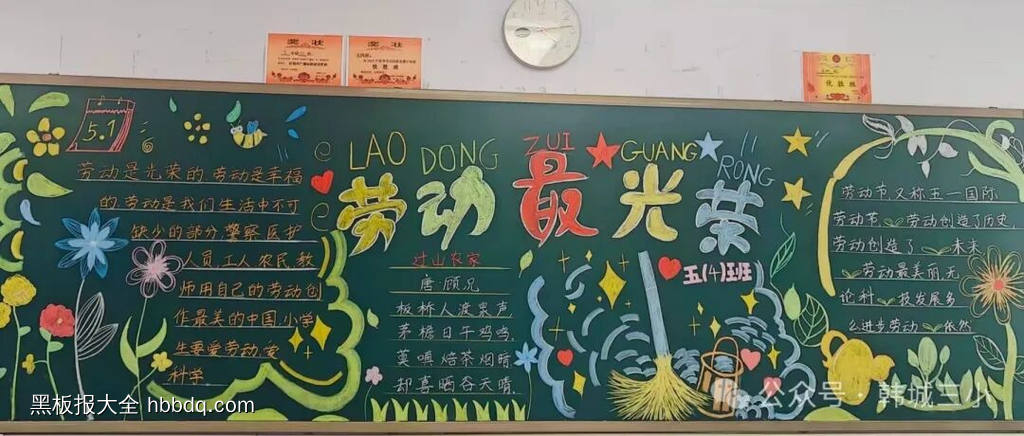 奖状
优胜班
奖状
优胜班
优胜班
5.1
LAO DONG ZUI GUANG RONG
劳动最光荣
劳动是光荣的劳动是幸福
的劳动是我们生活中不可
缺少的部分警察医护
人员工人农民教
师用自己的劳动创
作最美的中国小学
生要爱劳动 爱
科学
过山农家
唐 顾况
板桥人渡泉声
茅檐日午鸡鸣
莫嗔焙茶烟暗
却喜晒谷天晴
五(4)班
劳动节又称五一国际
劳动节 劳动创造了历史
劳动创造了 未来
劳动最美丽无
论科 技发展多
么进步劳动 依然
黑板报大全 hbbdq.com
公众号·韩城三小